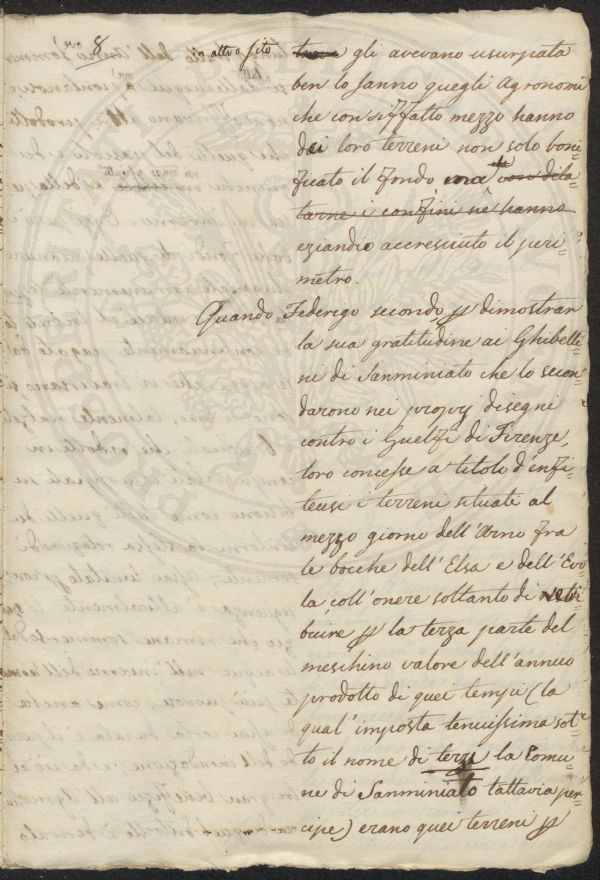 8
in altro sito
gli avevano usurpata
ben lo sanno quegli Agronomi
che con siffatto mezzo hanno
dei loro terreni non solo boni=
ficato il fondo ma con dila=
tarne i confini nè hanno
eziandio accresciuto il peri=
metro.
Quando Federigo secondo p dimostrar
la sua gratitudine ai Ghibelli
ni di Sanminiato che lo secon=
darono nei proprj disegni
contro i Guelfi di Firenze,
loro concesse a titolo d'enfi=
teusi i terreni situati al
mezzo giorno dell'Arno fra
le bocche dell'Elsa e dell'Evo
la coll'onere soltanto di retri
buire p la terza parte del
meschino valore dell'annuo
prodotto di quei tempi (la
qual'imposta tenuissima sot=
to il nome di terzi la Comu=
ne di Sanminiato tattavia per=
cipe) erano quei terreni p